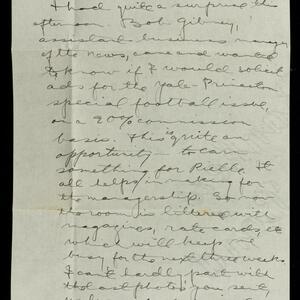 I had quite a surprise this
afternoon. Bob Gibney,
assistant business manager
of the news, came and wanted
to know if I would solicit
ads for the Yale-Princeton
special football issue,
on a 20% commission
basis. This is quite an
opportunity to earn
something for Pielle. It
all helps in making for
the managership. So now
the room is littered with
magazines, rate cards, etc
which will keep me
busy for the next three weeks
I can't hardly part with
the last photos you sent,